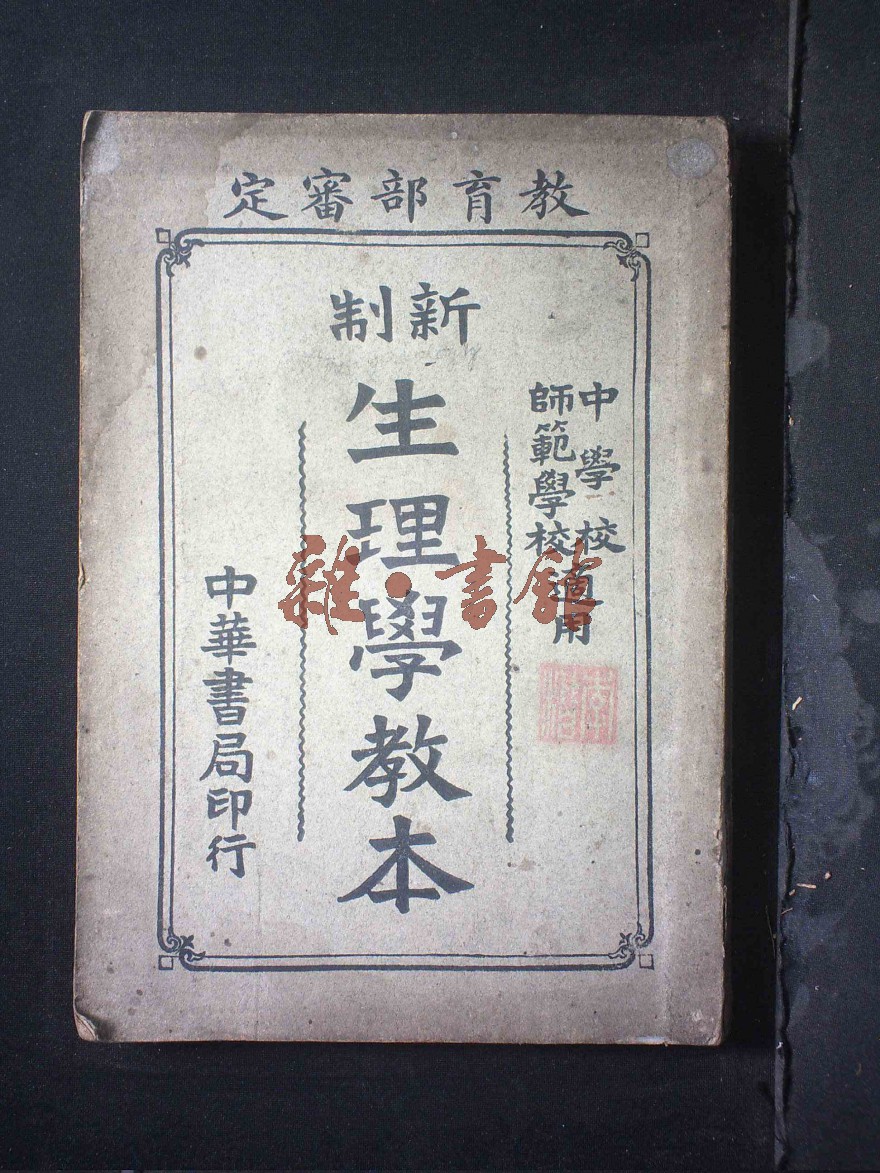 教育部審定
中學校
師範學校
適用
新制
生理學教本
中華書局印行
雜·書館